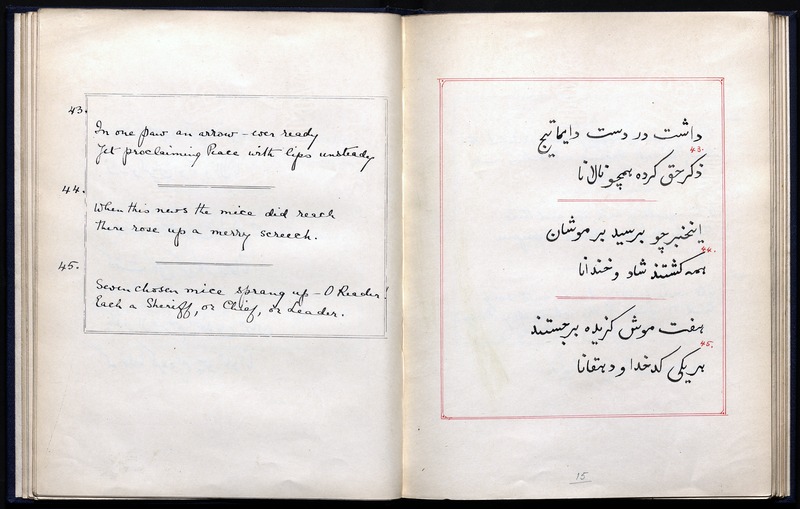 43.
In one paw an arrow - ever ready
Yet proclaiming Peace with lips unsteady
44.
When this news the mice did reach
There rose up a merry screech.
45.
Seven chosen mice sprang up - O Reader!
Each a Sheriff, or Chief, or Leader.
داشت در دست دایما تیج
43.
ذکر حق کرده همچو نالانا
اینخبر چو برسید بر موشان
44.
همه گشتند شاد و خندانا
هفت موش گزیده برجستند
45.
هر یکی کدخدا و دهقانا
15